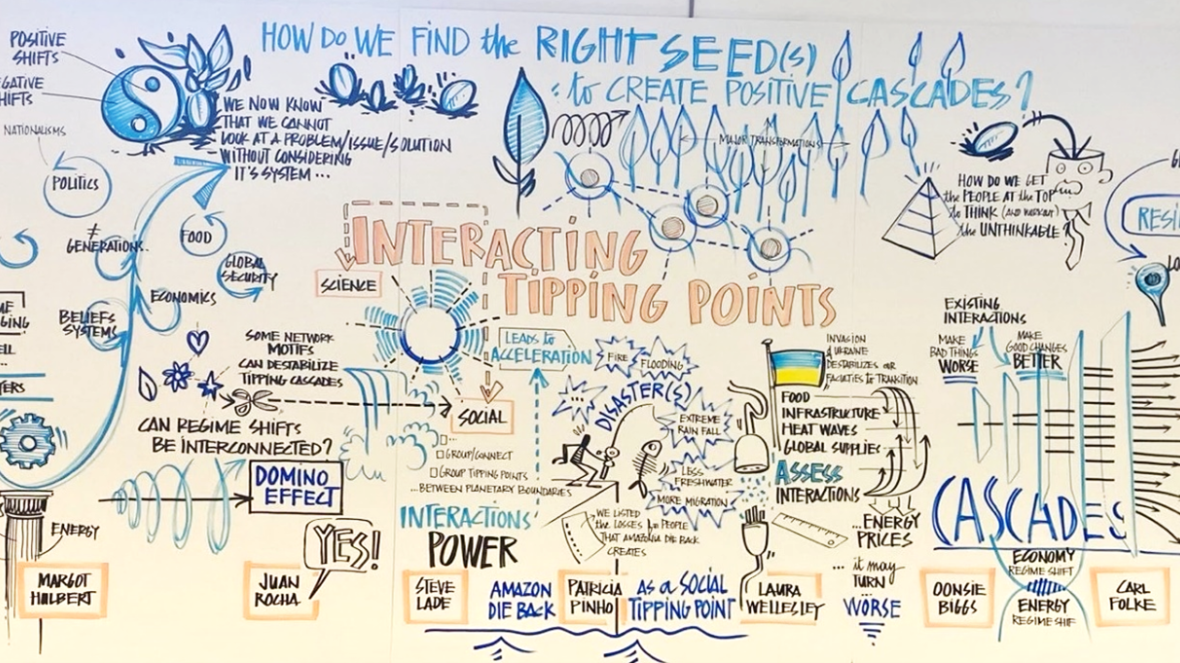 HOW DO WE FIND the RIGHT SEED(S)
: to CREATE POSITIVE CASCADES?
POSITIVE
SHIFTS
GATIVE
HIFTS
NATIONALISMS
POLITICS
WE NOW KNOW
THAT WE CANNOT
LOOK AT A PROBLEM/ISSUE/SOLUTION
WITHOUT CONSIDERING
IT'S SYSTEM ...
≠
GENERATIONS
FOOD
GLOBAL
SECURITY
ECONOMICS
BELIEFS
SYSTEMS
ENERGY
MARGOT
HULBERT
SOME NETWORK
MOTIFS
CAN DESTABILIZE
TIPPING CASCADES
CAN REGIME SHIFTS
BE INTERCONNECTED?
DOMINO
EFFECT
YES!
JUAN
ROCHA
MAJOR TRANSFORMATIONS
INTERACTING
TIPPING POINTS
SCIENCE
SOCIAL
GROUP/CONNECT
GROUP TIPPING POINTS
...BETWEEN PLANETARY BOUNDARIES
INTERACTIONS'
POWER
STEVE
LADE
LEADS to
ACCELERATION
FIRE
FLOODING
...
DISASTER(S)
EXTREME
RAIN FALL
LESS
FRESHWATER
MORE MIGRATION
WE LISTED
the LOSSES for PEOPLE
THAT AMAZONIA DIE BACK
CREATES
AMAZON
DIE BACK
PATRICIA
PINHO
AS a SOCIAL
TIPPING POINT
INVASION
UKRAINE
DESTABILIZES OUR
FACULTIES to TRANSITION
FOOD
INFRASTRUCTURE
HEAT WAVES
GLOBAL SUPPLIES
ASSESS
INTERACTIONS
...ENERGY
PRICES
... it may
TURN
WORSE
LAURA
WELLESLEY
HOW DO WE GET
the PEOPLE AT the TOP
to THINK (AND WORK OUT)
the UNTHINKABLE?
EXISTING
INTERACTIONS
MAKE
BAD THINGS
WORSE
MAKE
GOOD CHANGES
BETTER
CASCADES
ECONOMY
REGIME SHIFT
ENERGY
REGIME SHIF
OONSIE
BIGGS
CARL
FOLKE